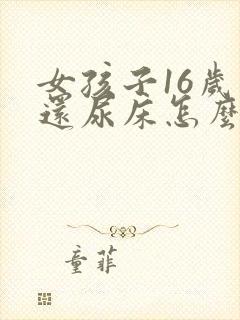 女孩子16歲
還尿床怎麼
童菲